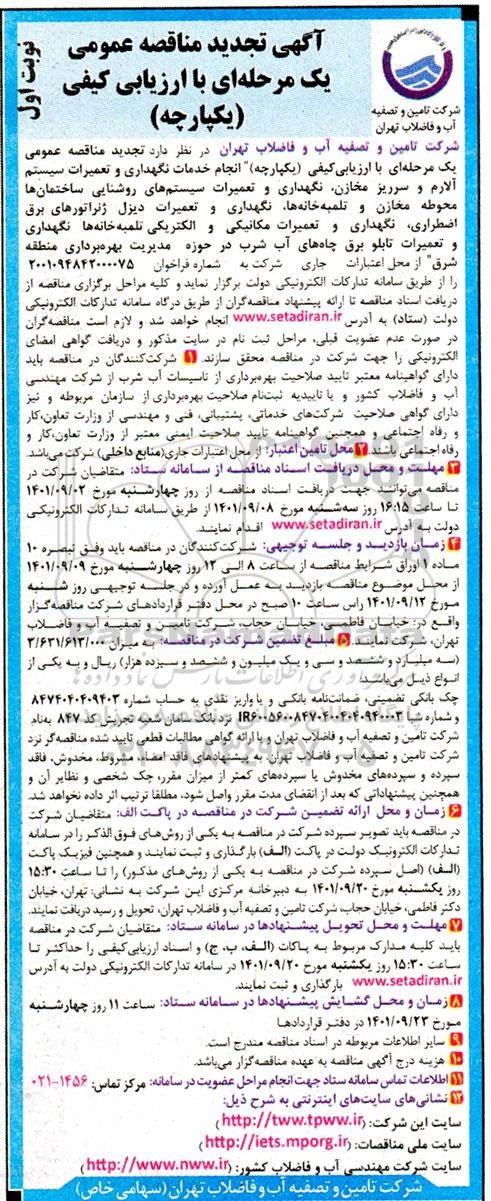 آگهی تجدید مناقصه عمومی
یک مرحله‌ای با ارزیابی کیفی
(یکپارچه)
نوبت اول
شرکت تامین و تصفیه
آب و فاضلاب تهران
شرکت تامین و تصفیه آب و فاضلاب تهران در نظر دارد تجدید مناقصه عمومی
یک مرحله‌ای با ارزیابی‌کیفی (یکپارچه)" انجام خدمات نگهداری و تعمیرات سیستم
آلارم و سرریز مخازن، نگهداری و تعمیرات سیستم‌های روشنایی ساختمان‌ها
محوطه مخازن و تلمبه‌خانه‌ها، نگهداری و تعمیرات دیزل ژنراتورهای برق
اضطراری، نگهداری و تعمیرات مکانیکی و الکتریکی تلمبه‌خانه‌ها نگهداری
و تعمیرات تابلو برق چاه‌های آب شرب در حوزه مدیریت بهره‌برداری منطقه
شرق" از محل اعتبارات جاری شرکت به شماره فراخوان ۲۰۰۱۰۹۴۸۴۲۰۰۰۰۷۵
را از طریق سامانه تدارکات الکترونیکی دولت برگزار نماید و کلیه مراحل برگزاری مناقصه از
دریافت اسناد مناقصه تا ارائه پیشنهاد مناقصه‌گران از طریق درگاه سامانه تدارکات الکترونیکی
دولت (ستاد) به آدرس www.setadiran.ir انجام خواهد شد و لازم است مناقصه‌گران
در صورت عدم عضویت قبلی، مراحل ثبت نام در سایت مذکور و دریافت گواهی امضای
الکترونیکی را جهت شرکت در مناقصه محقق سازند. ۱ شرکت‌کنندگان در مناقصه باید
دارای گواهینامه معتبر تایید صلاحیت بهره‌برداری از تاسیسات آب شرب از شرکت مهندسی
آب و فاضلاب کشور و یا تاییدیه ثبت‌نام صلاحیت بهره‌برداری از سازمان مربوطه و نیز
دارای گواهی صلاحیت شرکت‌های خدماتی، پشتیبانی، فنی و مهندسی از وزارت تعاون،کار
و رفاه اجتماعی و همچنین گواهینامه تایید صلاحیت ایمنی معتبر از وزارت تعاون،کار و
رفاه اجتماعی باشند. ۲ محل تامین اعتبار: از محل اعتبارات جاری(منابع داخلی) شرکت می‌باشد.
۳ مهلت و محل دریافت اسناد مناقصه از سامانه ستاد: متقاضیان شرکت در
مناقصه می‌توانند جهت دریافت اسناد مناقصه از روز چهارشنبه مورخ ۱۴۰۱/۰۹/۰۲
تا ساعت ۱۶:۱۵ روز سه‌شنبه مورخ ۱۴۰۱/۰۹/۰۸ از طریق سامانه تدارکات الکترونیکی
دولت به آدرس www.setadiran.ir اقدام نمایند.
۴ زمان بازدید و جلسه توجیهی: شرکت‌کنندگان در مناقصه باید وفق تبصره ۱۰
ماده ۱ اوراق شرایط مناقصه از ساعت ۸ الی ۱۲ روز چهارشنبه مورخ ۱۴۰۱/۰۹/۰۹
از محل موضوع مناقصه بازدید به عمل آورده و در جلسه توجیهی روز شنبه
مورخ ۱۴۰۱/۰۹/۱۲ راس ساعت ۱۰ صبح در محل دفتر قراردادهای شرکت مناقصه‌گزار
واقع در: خیابان فاطمی، خیابان حجاب، شرکت تامین و تصفیه آب و فاضلاب
تهران، شرکت نمایند. ۵ مبلغ تضمین شرکت در مناقصه: به میزان ۳/۶۳۱/۶۱۳/۰۰۰
(سه میلیارد و ششصد و سی و یک میلیون و ششصد و سیزده هزار) ریال و به یکی از
انواع ذیل می‌باشد:
چک بانکی تضمینی، ضمانت‌نامه بانکی و یا واریز نقدی به حساب شماره ۸۴۷۴۰۴۰۴۰۹۴۰۳
و شماره شبا IR۶۰۰۵۶۰۰۸۴۷۰۴۰۰۴۰۴۰۹۴۰۰۳ نزد بانک سامان شعبه تجریش کد ۸۴۷ به‌نام
شرکت تامین و تصفیه آب و فاضلاب تهران و یا ارائه گواهی مطالبات قطعی تایید شده مناقصه‌گر نزد
شرکت تامین و تصفیه آب و فاضلاب تهران. به پیشنهادهای فاقد امضاء، مشروط، مخدوش، فاقد
سپرده و سپرده‌های مخدوش یا سپرده‌های کمتر از میزان مقرر، چک شخصی و نظایر آن و
همچنین پیشنهاداتی که بعد از انقضای مدت مقرر واصل شود، مطلقا ترتیب اثر داده نخواهد شد.
۶ زمان و محل ارائه تضمین شرکت در مناقصه در پاکت الف: متقاضیان شرکت
در مناقصه باید تصویر سپرده شرکت در مناقصه به یکی از روش‌های فوق الذکر را در سامانه
تدارکات الکترونیک دولت در پاکت (الف) بارگذاری و ثبت نمایند و همچنین فیزیک پاکت
(الف) (اصل سپرده شرکت در مناقصه به یکی از روش‌های مذکور) را تا ساعت ۱۵:۳۰
روز یکشنبه مورخ ۱۴۰۱/۰۹/۲۰ به دبیرخانه مرکزی این شرکت به نشانی: تهران، خیابان
دکتر فاطمی، خیابان حجاب، شرکت تامین و تصفیه آب و فاضلاب تهران، تحویل و رسید دریافت نمایند.
۷ مهلت و محل تحویل پیشنهادها در سامانه ستاد: متقاضیان شرکت در مناقصه
باید کلیه مدارک مربوط به پاکات (الف، ب، ج) و اسناد ارزیابی‌کیفی را حداکثر تا
ساعت ۱۵:۳۰ روز یکشنبه مورخ ۱۴۰۱/۰۹/۲۰ در سامانه تدارکات الکترونیکی دولت به آدرس
www.setadiran.ir بارگذاری و ثبت نمایند.
۸ زمان و محل گشایش پیشنهادها در سامانه ستاد: ساعت ۱۱ روز چهارشنبه
مورخ ۱۴۰۱/۰۹/۲۳ در دفتر قراردادها
۹ سایر اطلاعات مربوطه در اسناد مناقصه مندرج است.
۱۰ هزینه درج آگهی مناقصه به عهده مناقصه‌گزار می‌باشد.
۱۱ اطلاعات تماس سامانه ستاد جهت انجام مراحل عضویت در سامانه: مرکز تماس: ۱۴۵۶-۰۲۱
۱۲ نشانی‌های سایت‌های اینترنتی به شرح ذیل:
سایت این شرکت: (http://tww.tpww.ir)
سایت ملی مناقصات: (http://iets.mporg.ir)
سایت شرکت مهندسی آب و فاضلاب کشور: (http://www.nww.ir)
شرکت تامین و تصفیه آب و فاضلاب تهران (سهامی خاص)